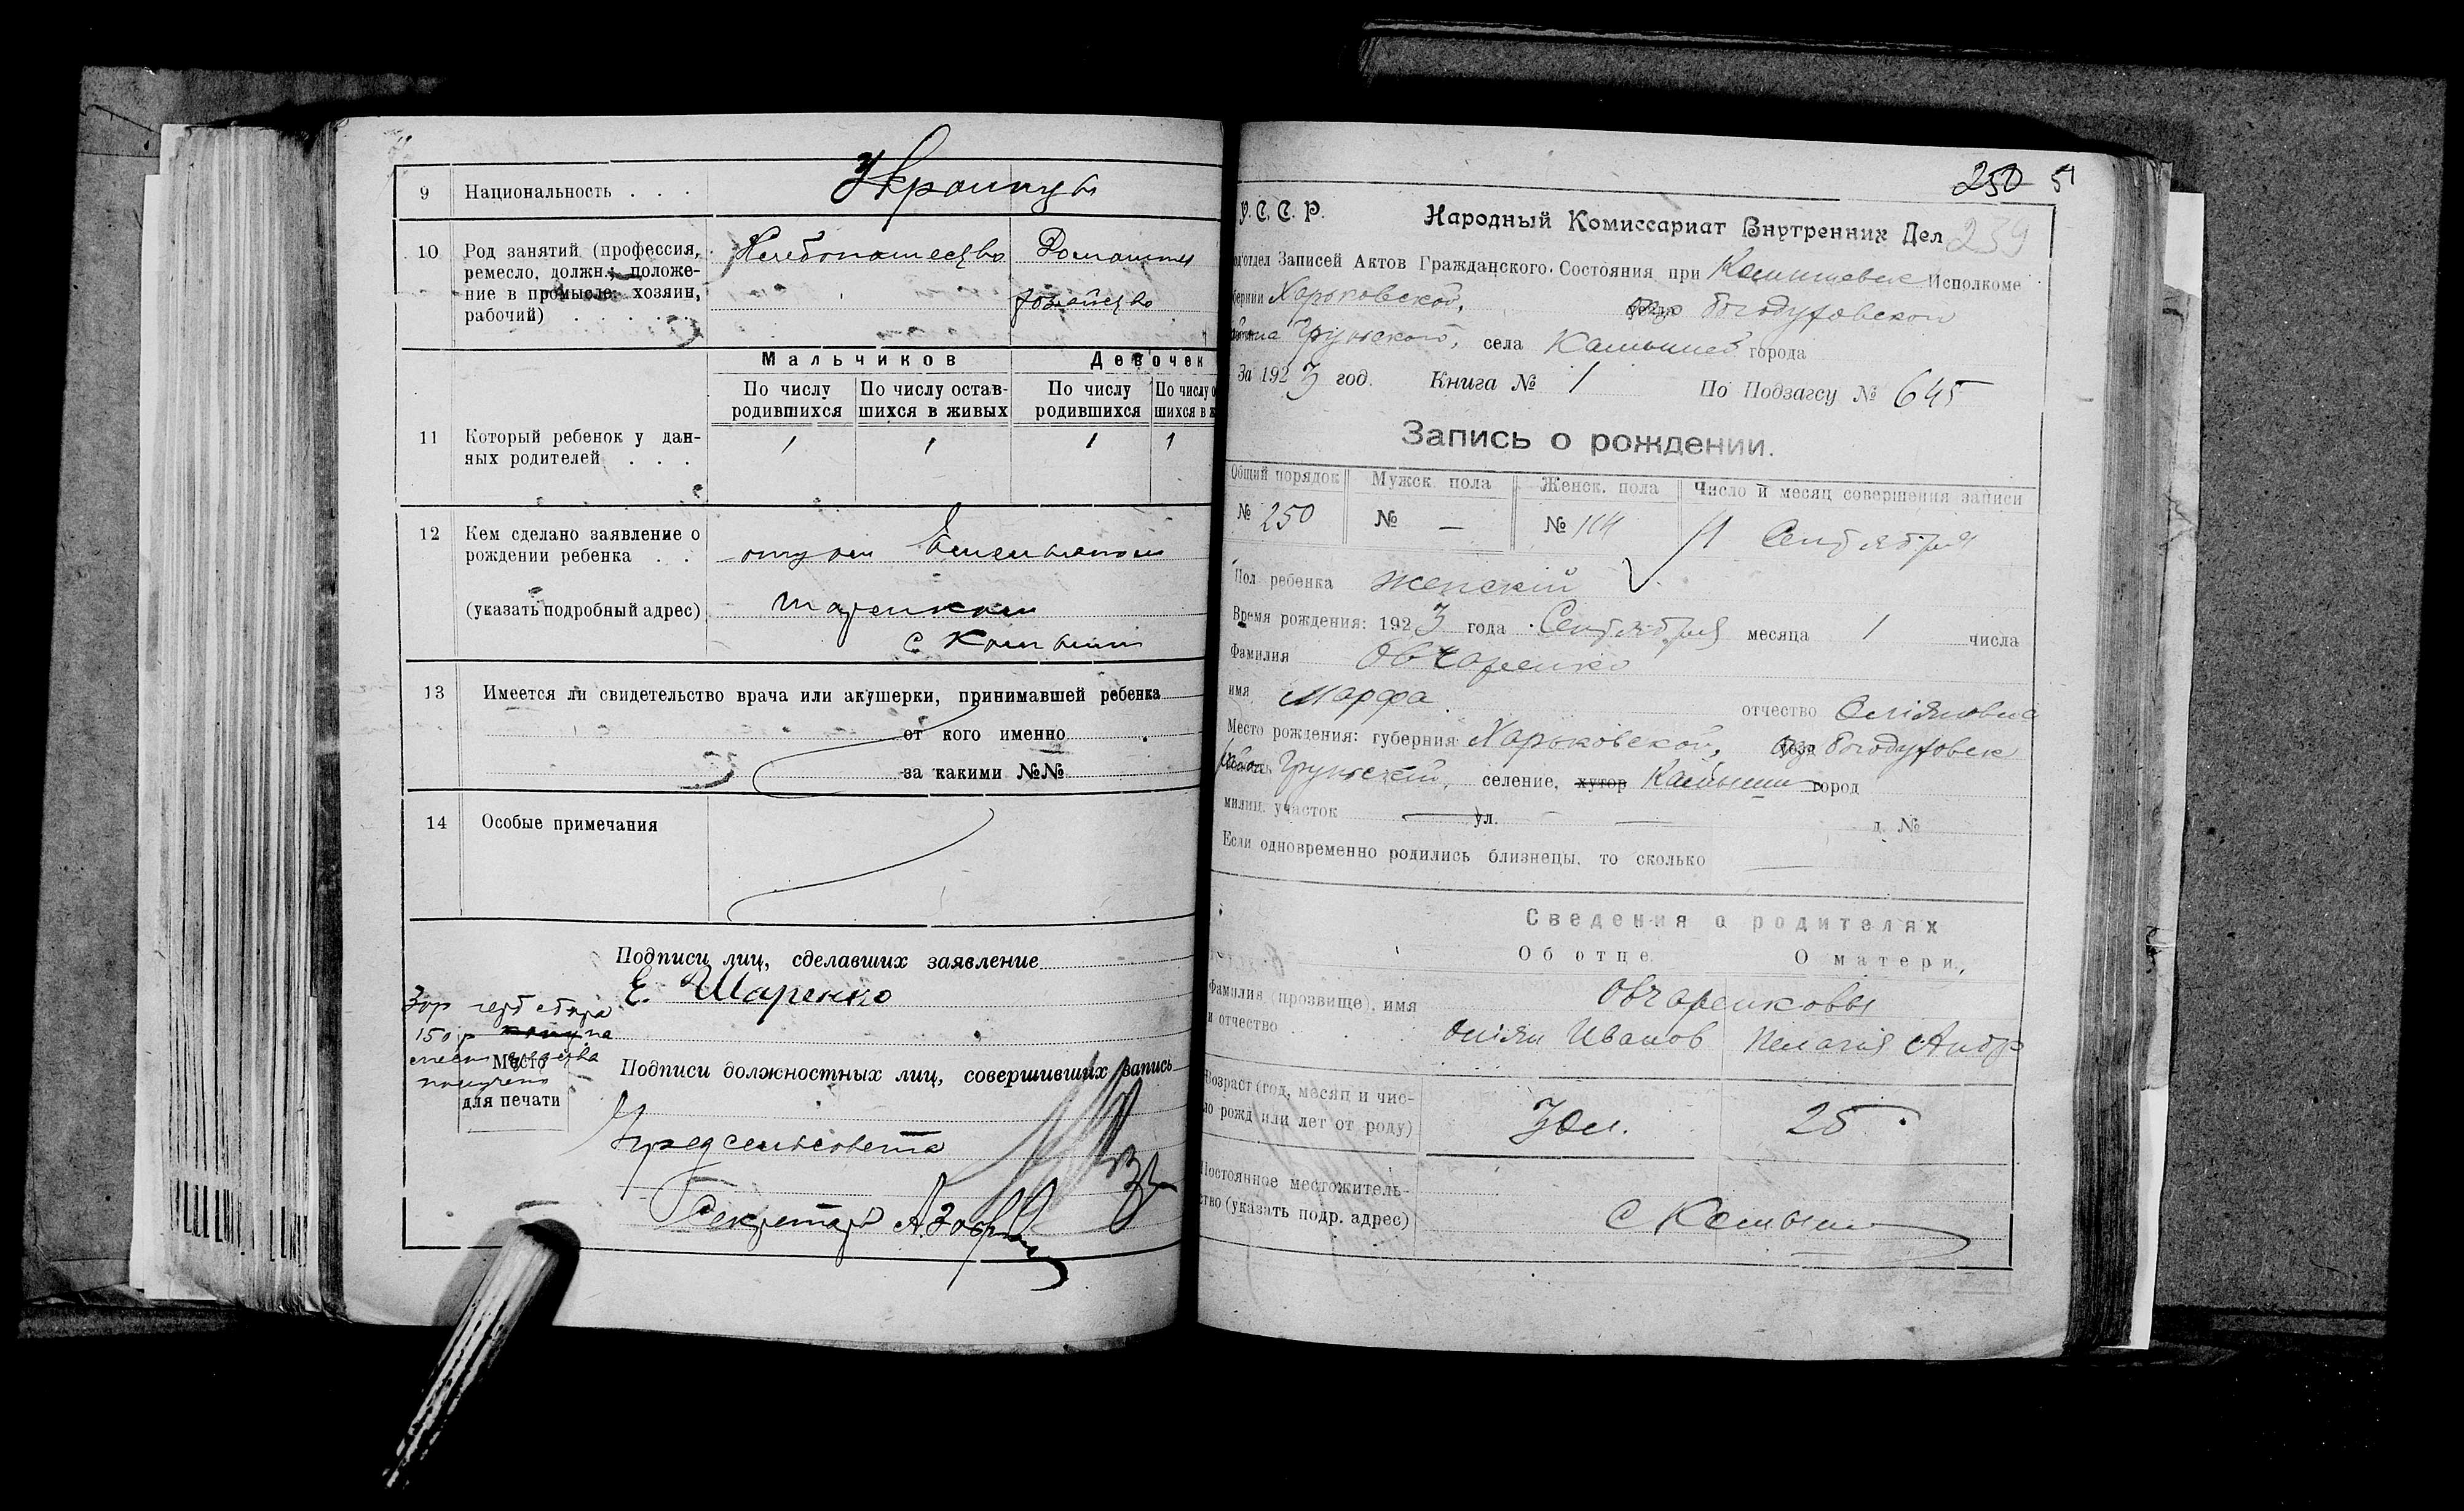 9 Национальность . . . Украинцы
10 Род занятий (профессия, Хлебопашество Домашнее
ремесло, должн.; положе-
ние в промысле: хозяин, хозяйство
рабочий) . . . . .
Мальчиков Девочек
По числу По числу остав- По числу По числу о
родившихся шихся в живых родившихся шихся в ж
11 Который ребенок у дан- 1 1 1 1
ных родителей . . .
12 Кем сделано заявление о
рождении ребенка . . отцом Емельяном
(указать подробный адрес) Шаренком
с Камыши
13 Имеется ли свидетельство врача или акушерки, принимавшей ребенка
от кого именно
за какими №№
14 Особые примечания
Подписи лиц, сделавших заявление
Е. Шаренко
150 р
Место
получено
для печати
Подписи должностных лиц, совершивших запись
Предсельсовета
Секретарь
250 51
У. С. С. Р. Народный Комиссариат Внутренних Дел 239
одотдел Записей Актов Гражданского Состояния при Камышевск Исполкоме
бернии Харьковской, Богодуховской
Грунской, села Камышей города
За 1923 год. Книга № 1 По Подзагсу № 645
Запись о рождении.
Общий порядок Мужск. пола Женск. пола Число и месяц совершения записи
№ 250 № — № 114 11 Сентября
Пол ребенка женский
Время рождения: 1923 года Сентября месяца 1 числа
Фамилия Овчаренко
имя Марфа отчество Омияновна
Место рождения: губерния Харьковской, Богодуховск
Грунский, селение, хутор Камыши город
милиц. участок — ул. — д. №
Если одновременно родились близнецы, то сколько —
Сведения о родителях
Об отце О матери
Фамилия (прозвище), имя Овчаренковы
и отчество . . Омиян Иванов Пелагия Андр
Возраст (год, месяц и чис-
ло рожд или лет от роду) 30 л. 25
Постоянное местожитель-
ство (указать подр. адрес) с Камыши